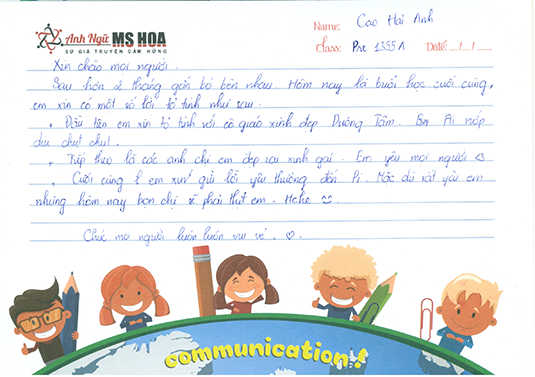 Anh Ngữ MS HOA
SỨ GIẢ TRUYỀN CẢM HỨNG
Name: Cao Hải Anh
Class: Pre 1355A Date: / /
Xin chào mọi người.
Sau hơn 2 tháng gắn bó bên nhau. Hôm nay là buổi học cuối cùng,
em xin có một số lời tỏ tình như sau.
+ Đầu tiên em xin tỏ tình với cô giáo xinh đẹp Dương Tâm. Em Ai
dịu chụt chụt.
+ Tiếp theo là các anh chị em đẹp zai xinh gái. Em yêu mọi người <3
+ Cuối cùng em xin gửi lời yêu thương đến Pi. Mặc dù rất yêu em
nhưng hôm nay bọn chị sẽ phải thịt em. Hehe
Chúc mọi người luôn luôn vui vẻ.
communication!